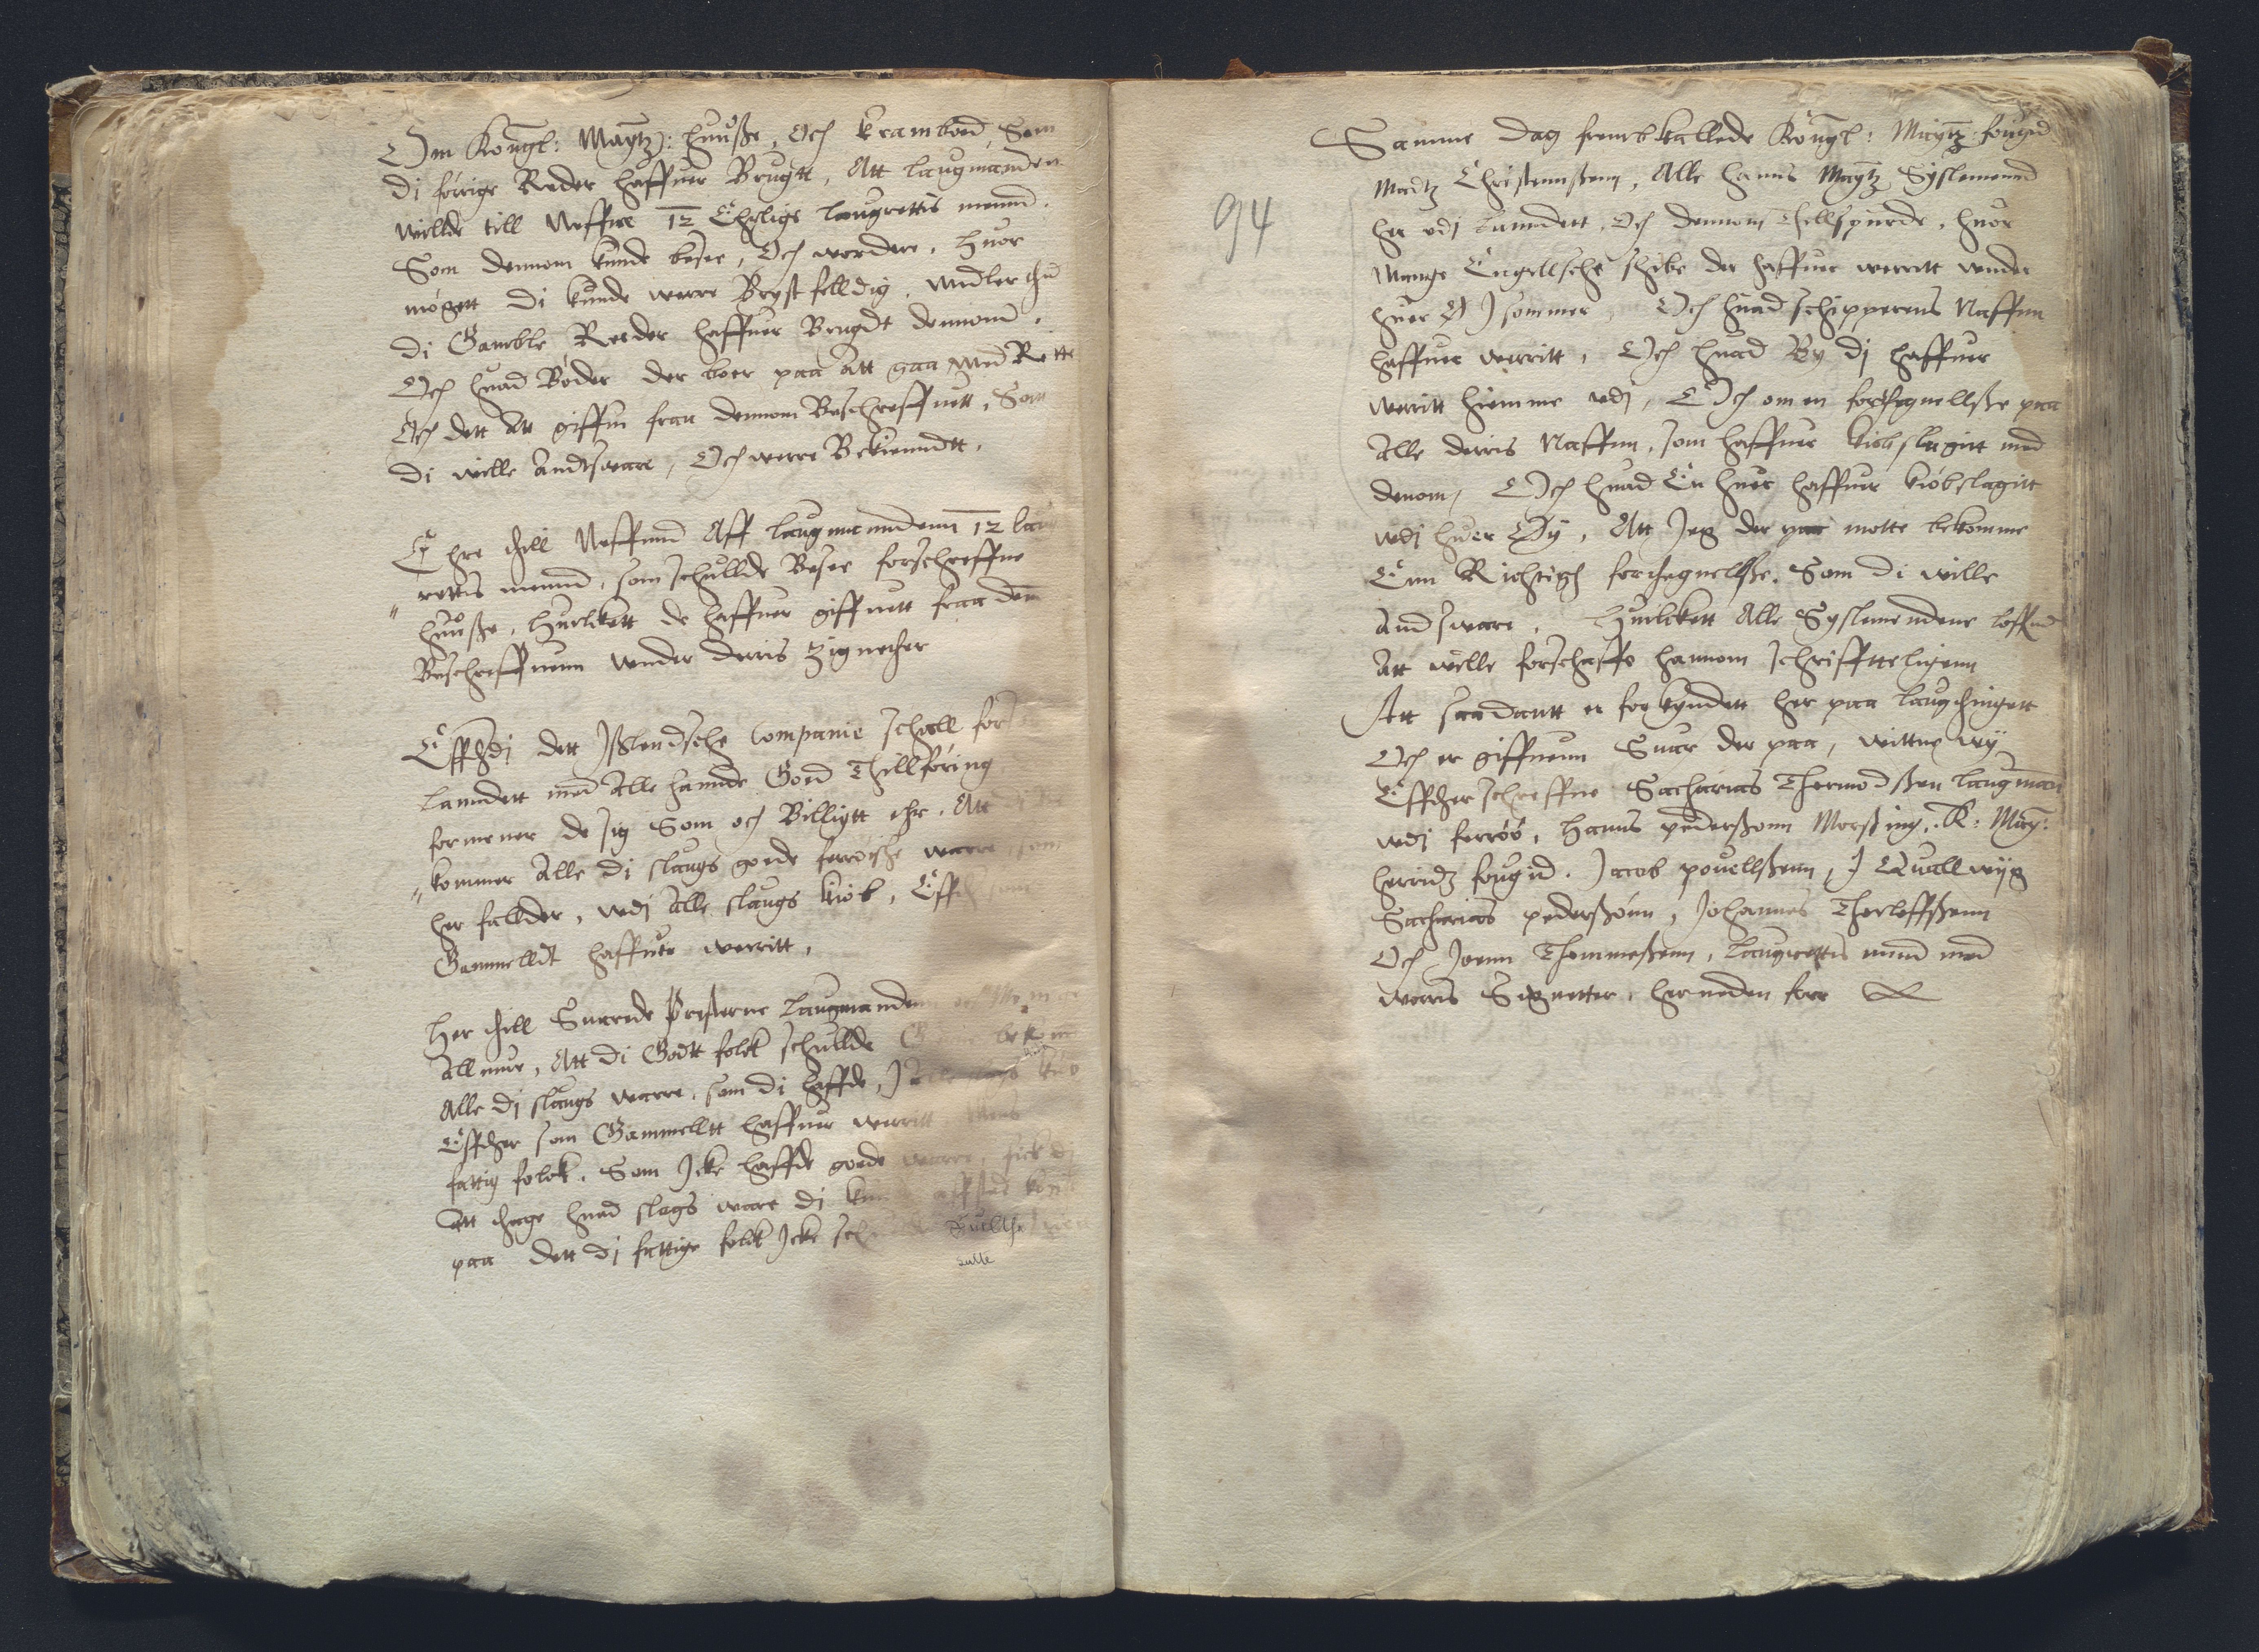 Om Kongl: Maytz: huuße, Och kramboed Som
di förrige Reder haffuer Brugtt, Att laugmanden
willde till Neffne 12 Ehrlige laugrettis mennd.
Som dennom kunde besee, Och wordere, huor
mögett di kunde werre Bryst felldig,
di Gamble Reeder haffuer Brugdt dennom,
Och huad Böder der boer paa Att gaa med Rette
Och dett Att giffue fran dennom Beschreffuett, Som
di wille Andtsuare, Och werre Bekienndtt.
Ehre thill Neffnnd Aff laugmanndenn 12 laug
rettis mennd, som schullde Besee forschreffne
huuße, Huilckett de haffuer giffuett fraa dem
Beschreffuenn wnder derris Zignether
Effthdi dett Ißlendsche Companie schall for
Lanndett med Alle hannde Goed Thillföring
formener de sig Som och Billigtt ehr, Att
kommer Alle di slaugs goede ferröische warre som
her fallder, wdj Alle slaugs kiöb, Effth som
Gammelldt haffuer werritt,
Her thill Suarede Presterne Laugmanden och Menige
Allmue, Att di Godtt folck schullde bekom
Alle dj slaugs warre, som di haffde, J Alle slags kiöb
Effther som Gammelltt haffuer werritt
fattig folck, Som Jcke haffde goede warre, fick dj
Att thage huad slags ware di kunde affsted komme
paa dett dj fattige folck Jcke schullde
Suelthe
sulte
94
Samme dag frembkallede Kongl: Maytz fougid
Madtz Christennßenn, Alle hanns Maytz Syslemennd
her udj Lanndett, Och dennom Thillspurde, huor
Mange Engellsche skibe der haffuer werritt wnder
huer Ö J sommer, Och huad schipperens Naffnn
haffuer werritt, Och huad By dj haffuer
werritt hiemme udj, Och om en forthegnellße paa
Alle derris Naffnn, som haffuer kiöbslagitt med
denom, Och huad En huer haffuer kiöbslagitt
wdj huer Öy, Att Jeg der paa motte bekomme
Enn Richtigh forthegnellße, Som di wille
Andsware, Huilckett Alle Syslemendene loffuid
Att wille forschaffe hannom schrifftteligenn
Att saadantt er forkyndett her paa laugthingett
Och er giffuenn Suar der paa, wittne wÿ
Effther schreffne Sacharias Thormodßen laugman
wdj ferröö, Hanns pederßonn Morßing, K: May:
herridz fougid. Jacob pouellßenn, J Quallwiig
Sacharias pederßönn, Johannes Therleffßenn
Och Joenn Thommeßenn, Laugrettis mend med
worris Signetter, her neden forr